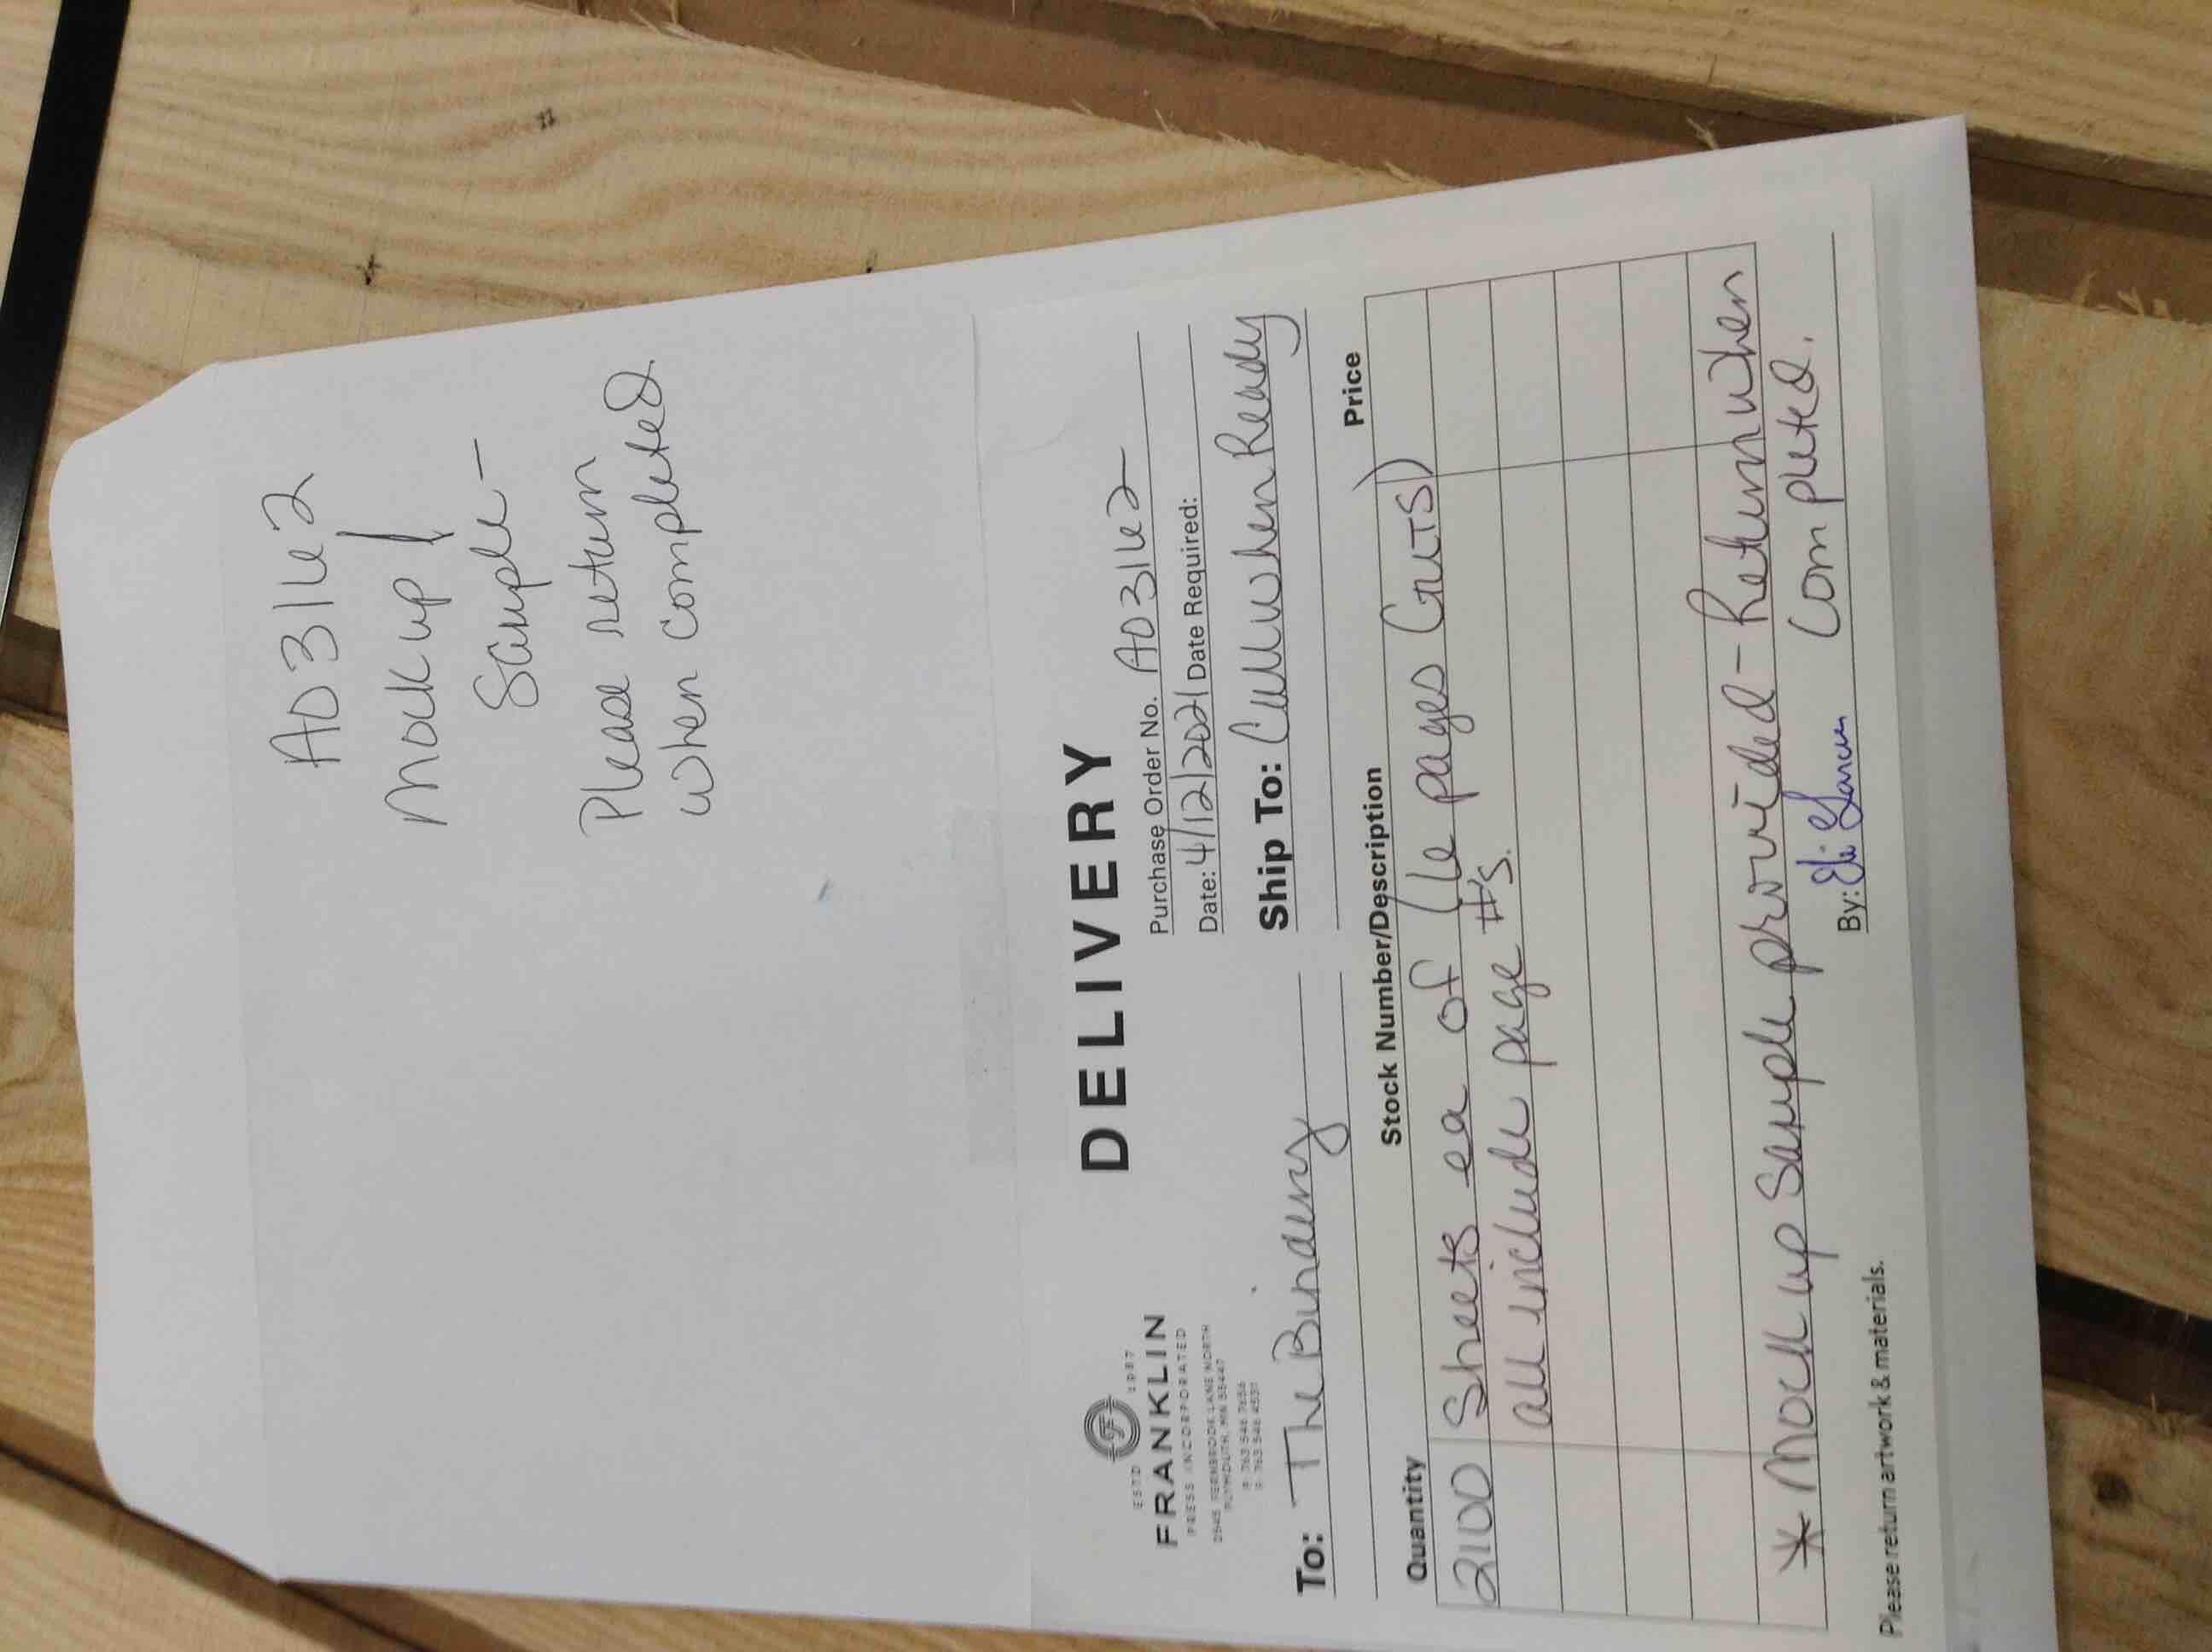 A03162
Mock up /
Sample -
Please return
when completed.
DELIVERY
ESTD 1987
FRANKLIN
PRESS INCORPORATED
PLYMOUTH, MN 55447
Purchase Order No. A03162
Date: 4/12/2021 Date Required:
To: The Bindery
Ship To: Call when Ready
Quantity Stock Number/Description Price
2100 Sheets ea of (16 pages Guts)
all include page #'s.
* Mock up Sample provided - Return when
completed.
Please return artwork & materials. By: